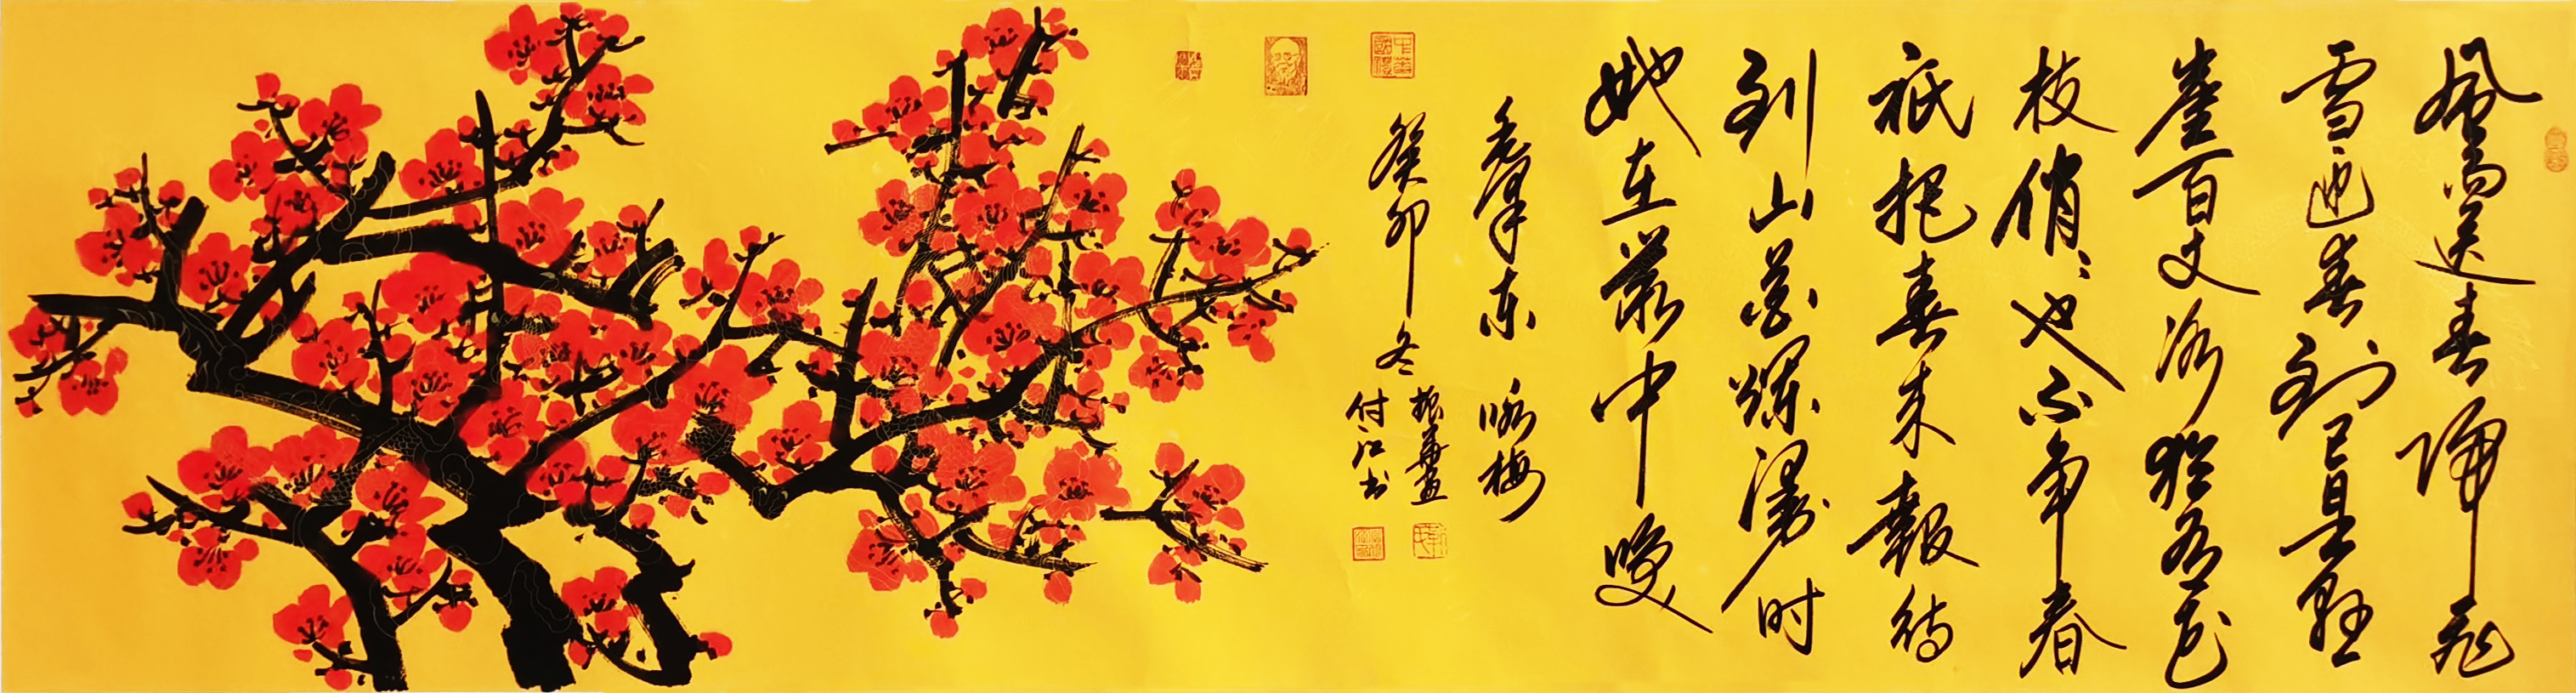 风雨送春歸飞
雪迎春到已是悬
崖百丈冰猶有花
枝俏〻也不争春
祇把春来報待
到山花爛漫时
她在丛中咲
毛泽东 咏梅
癸卯冬
振華画
付江书